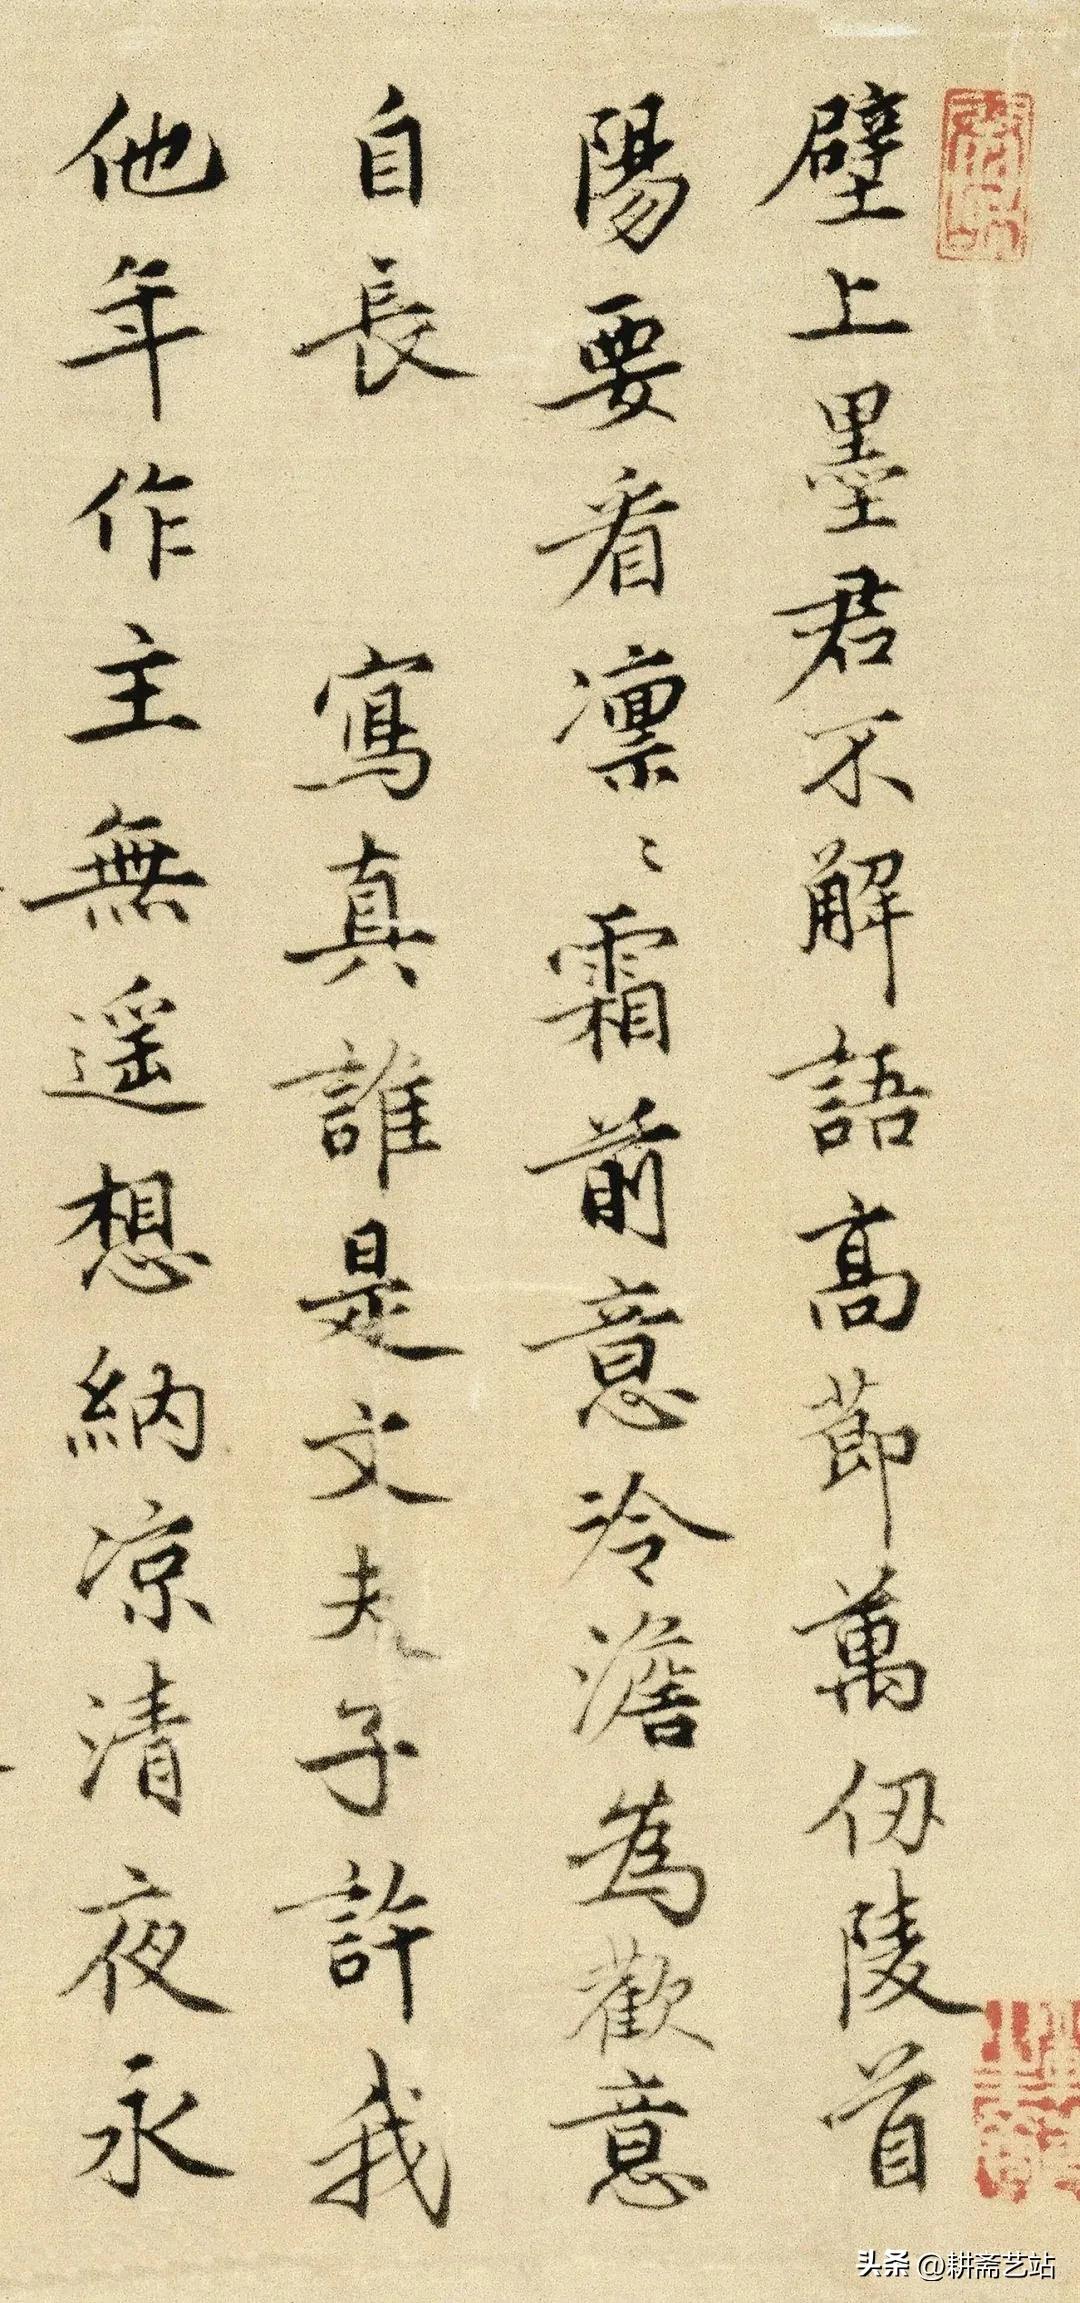 壁上墨君不解語高莭萬仞陵首
陽要看凛〻霜前意冷澹為歡意
自長 寫真誰是文夫子許我
他年作主無遥想納凉清夜永
头条 @耕斋艺站